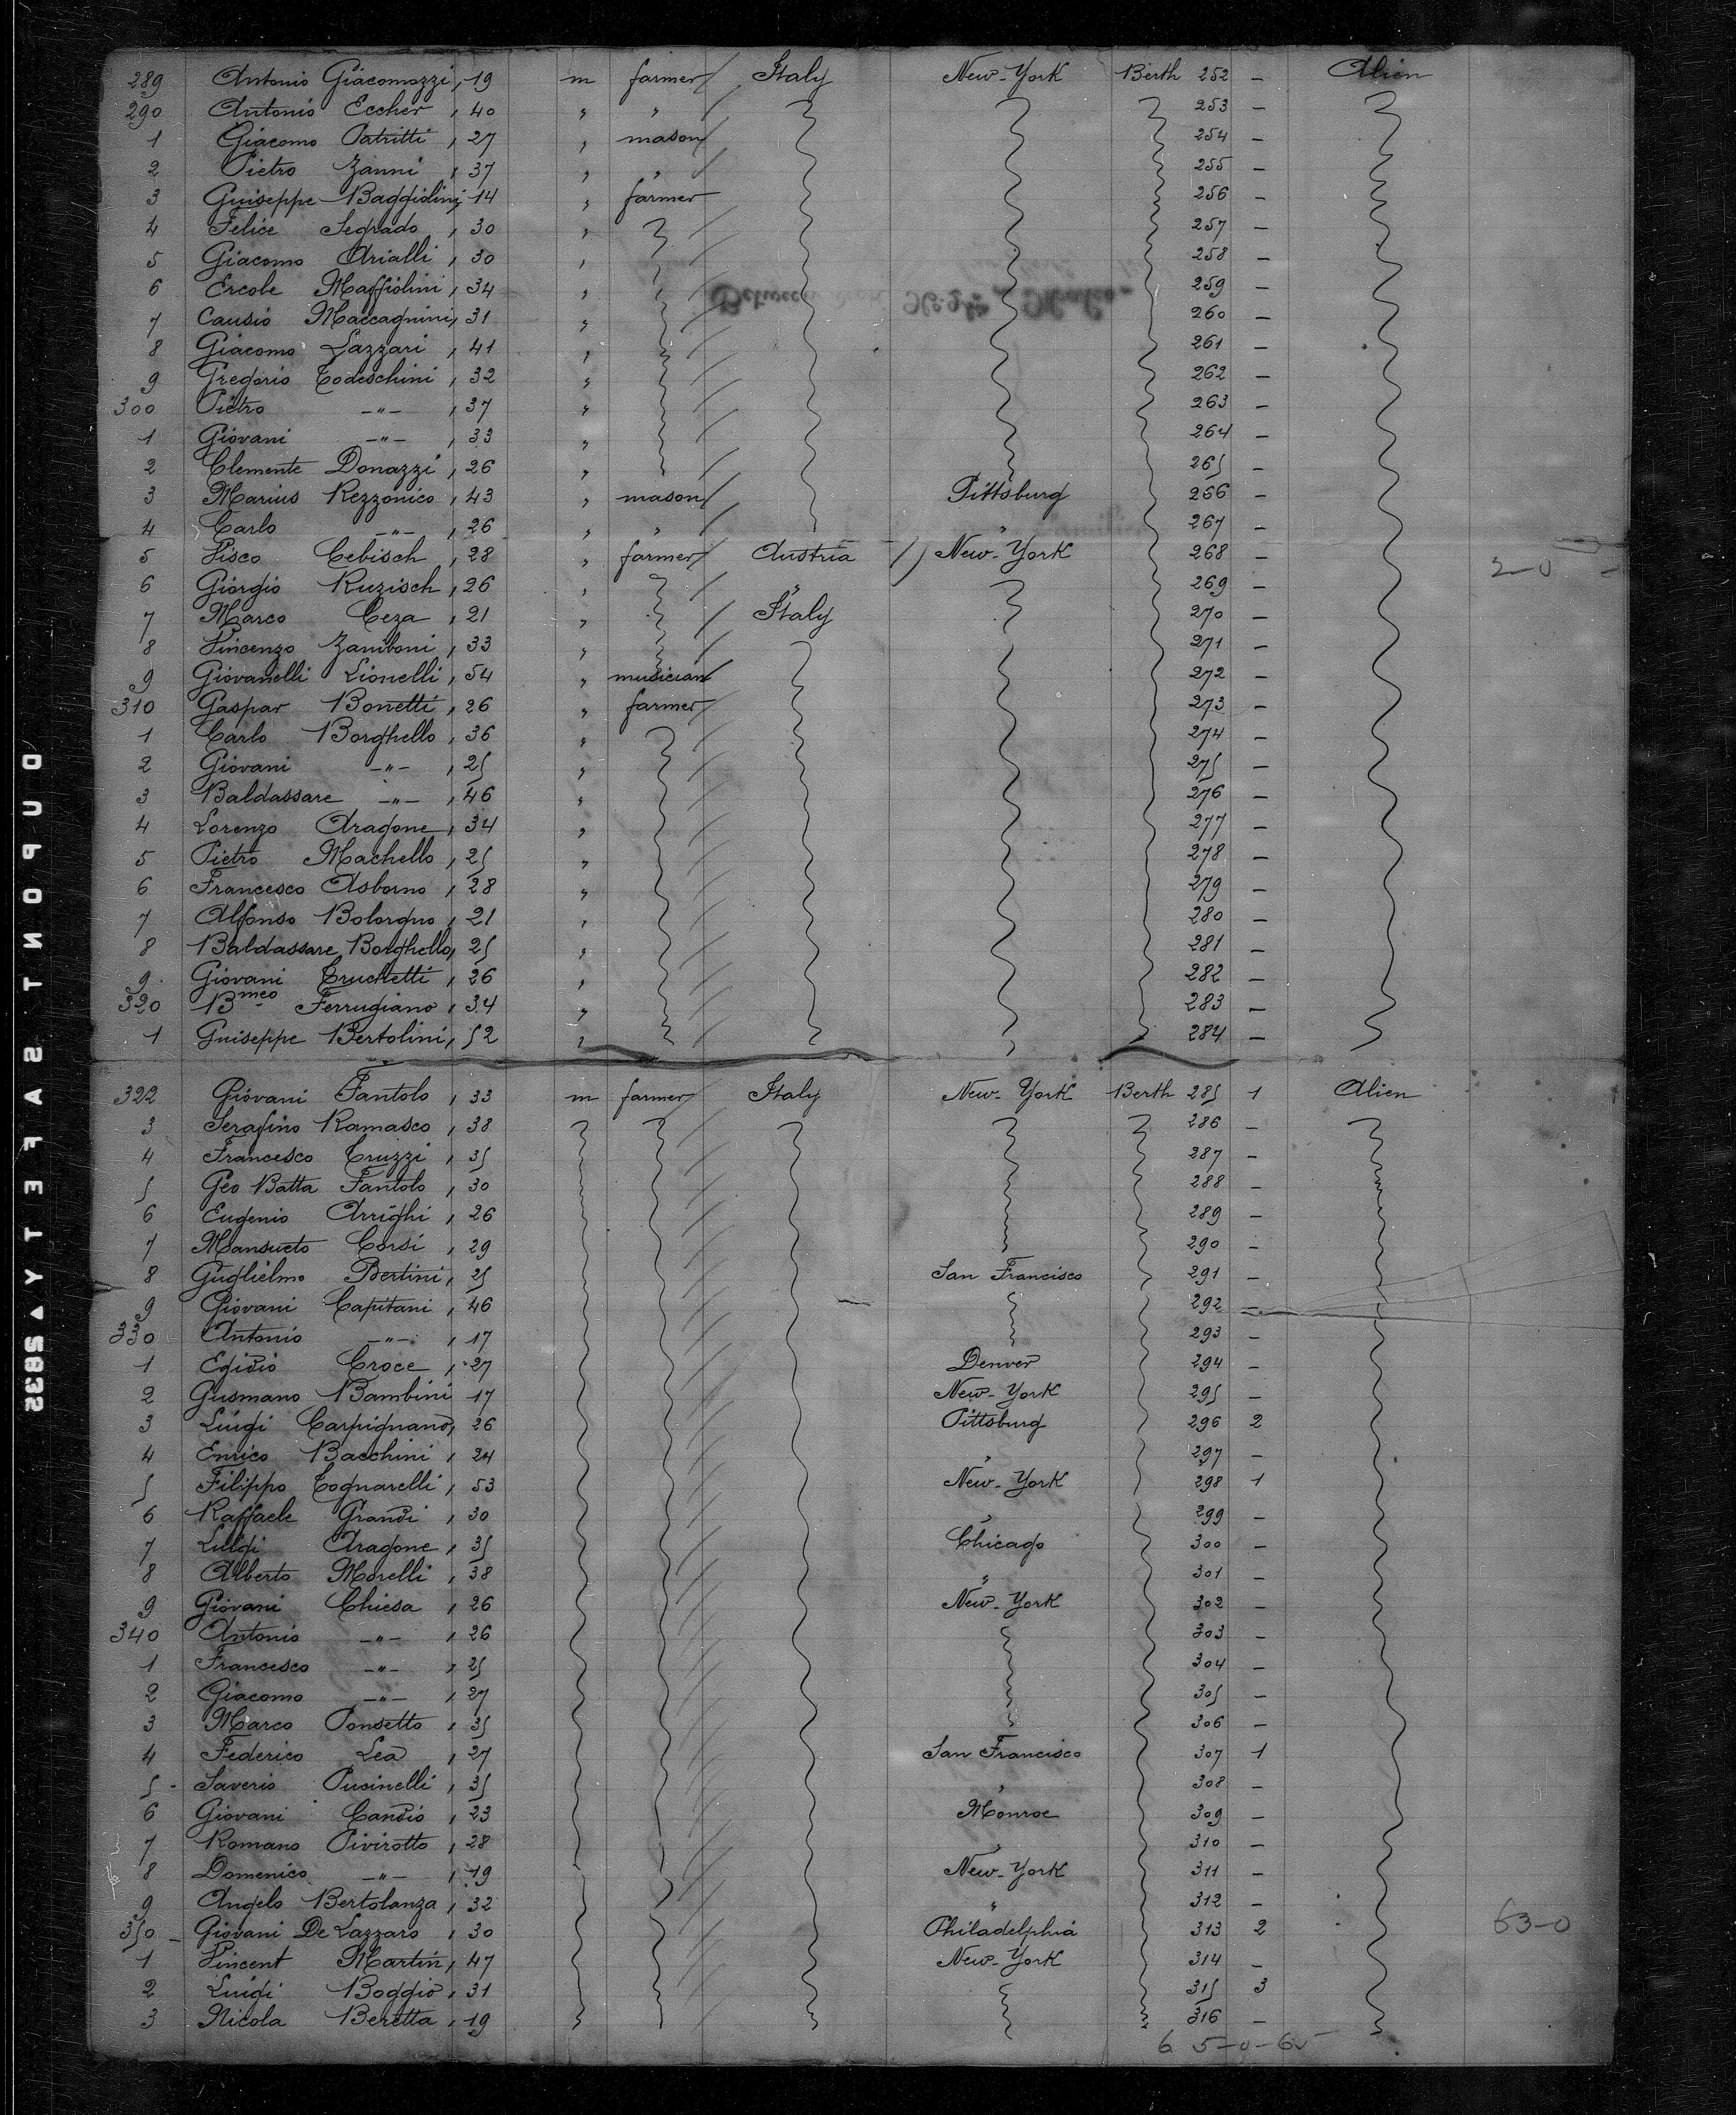 289 Antonio Giacomozzi, 19 m farmer Italy New-York Berth 252 — Alien
290 Antonio Eccher, 40 " " 253 —
1 Giacomo Patritti, 27 " mason 254 —
2 Pietro Zanni, 37 " " 255 —
3 Guiseppe Baggiolini, 14 " farmer 256 —
4 Felice Segrado, 30 " 257 —
5 Giacomo Arialli, 30 " 258 —
6 Ercole Maffiolini, 34 " 259 —
7 Causio Maccagnini, 31 " 260 —
8 Giacomo Lazzari, 41 " 261 —
9 Gregorio Todeschini, 32 " 262 —
300 Pietro -"- , 37 " 263 —
1 Giovani -"- , 33 " 264 —
2 Clemente Donazzi, 26 " 265 —
3 Marius Rezzonico, 43 " mason Pittsburg 266 —
4 Carlo -"- , 26 " " " 267 —
5 Cebisch, 28 " farmer Austria New-York 268 — 2-0
6 Giorgio Ruzisch, 26 " " 269 —
7 Marco Ceza, 21 " Italy 270 —
8 Vincenzo Zamboni, 33 " 271 —
9 Giovanelli Lionelli, 54 " musician 272 —
310 Gaspar Bonetti, 26 " farmer 273 —
1 Carlo Borghello, 36 " 274 —
2 Giovani -"- , 25 " 275 —
3 Baldassare -"- , 46 " 276 —
4 Lorenzo Aragone, 34 " 277 —
5 Pietro Machello, 25 " 278 —
6 Francesco Asborno, 28 " 279 —
7 Alfonso Bolorgno, 21 " 280 —
8 Baldassare Borghello, 25 " 281 —
9 Giovani Cruchetti, 26 " 282 —
320 Bmeo Ferrugiano, 34 " 283 —
1 Guiseppe Bertolini, 52 " 284 —
322 Giovani Fantolo, 33 m farmer Italy New-York Berth 285 1 Alien
3 Serafino Ramasco, 38 286 —
4 Francesco Cruzzi, 35 287 —
5 Geo Batta Fantolo, 30 288 —
6 Eugenio Arrighi, 26 289 —
7 Mansueto Corsi, 29 290 —
8 Guglielmo Bertini, 25 San Francisco 291 —
9 Giovani Capitani, 46 292 —
330 Antonio -"- , 17 293 —
1 Egidio Croce, 27 Denver 294 —
2 Gusmano Bambini 17 New-York 295 —
3 Luigi Carpignano, 26 Pittsburg 296 2
4 Enrico Bacchini, 24 " 297 —
5 Filippo Tognarelli, 53 New-York 298 1
6 Raffaele Grandi, 30 " 299 —
7 Luigi Aragone, 35 Chicago 300 —
8 Alberto Morelli, 38 " 301 —
9 Giovani Chiesa, 26 New-York 302 —
340 Antonio -"- , 26 303 —
1 Francesco -"- , 25 304 —
2 Giacomo -"- , 27 305 —
3 Marco Ponsetto, 35 306 —
4 Federico Lea, 27 San Francisco 307 1
5 Saverio Pusinelli, 35 " 308 —
6 Giovani Candio, 23 Monroe 309 —
7 Romano Pivirotto, 28 " 310 —
8 Domenico -"- , 19 New-York 311 —
9 Angelo Bertolanza, 32 " 312 —
350 Giovani De Lazzaro, 30 Philadelphia 313 2 63-0
1 Vincent Martin, 47 New-York 314 —
2 Luigi Boggio, 31 315 3
3 Nicola Beretta, 19 316 —
DUPONT SAFETY 5832